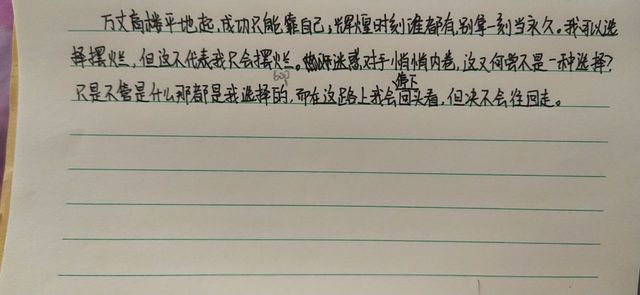 万丈高楼平地起,成功只能靠自己,辉煌时刻谁都有,别拿一刻当永久。我可以选
择摆烂,但这不代表我只会摆烂。迷惑对手悄悄内卷,这又何尝不是一种选择?
只是不管是什么那都是我选择的,而在这路上我会停下回头看,但决不会往回走。